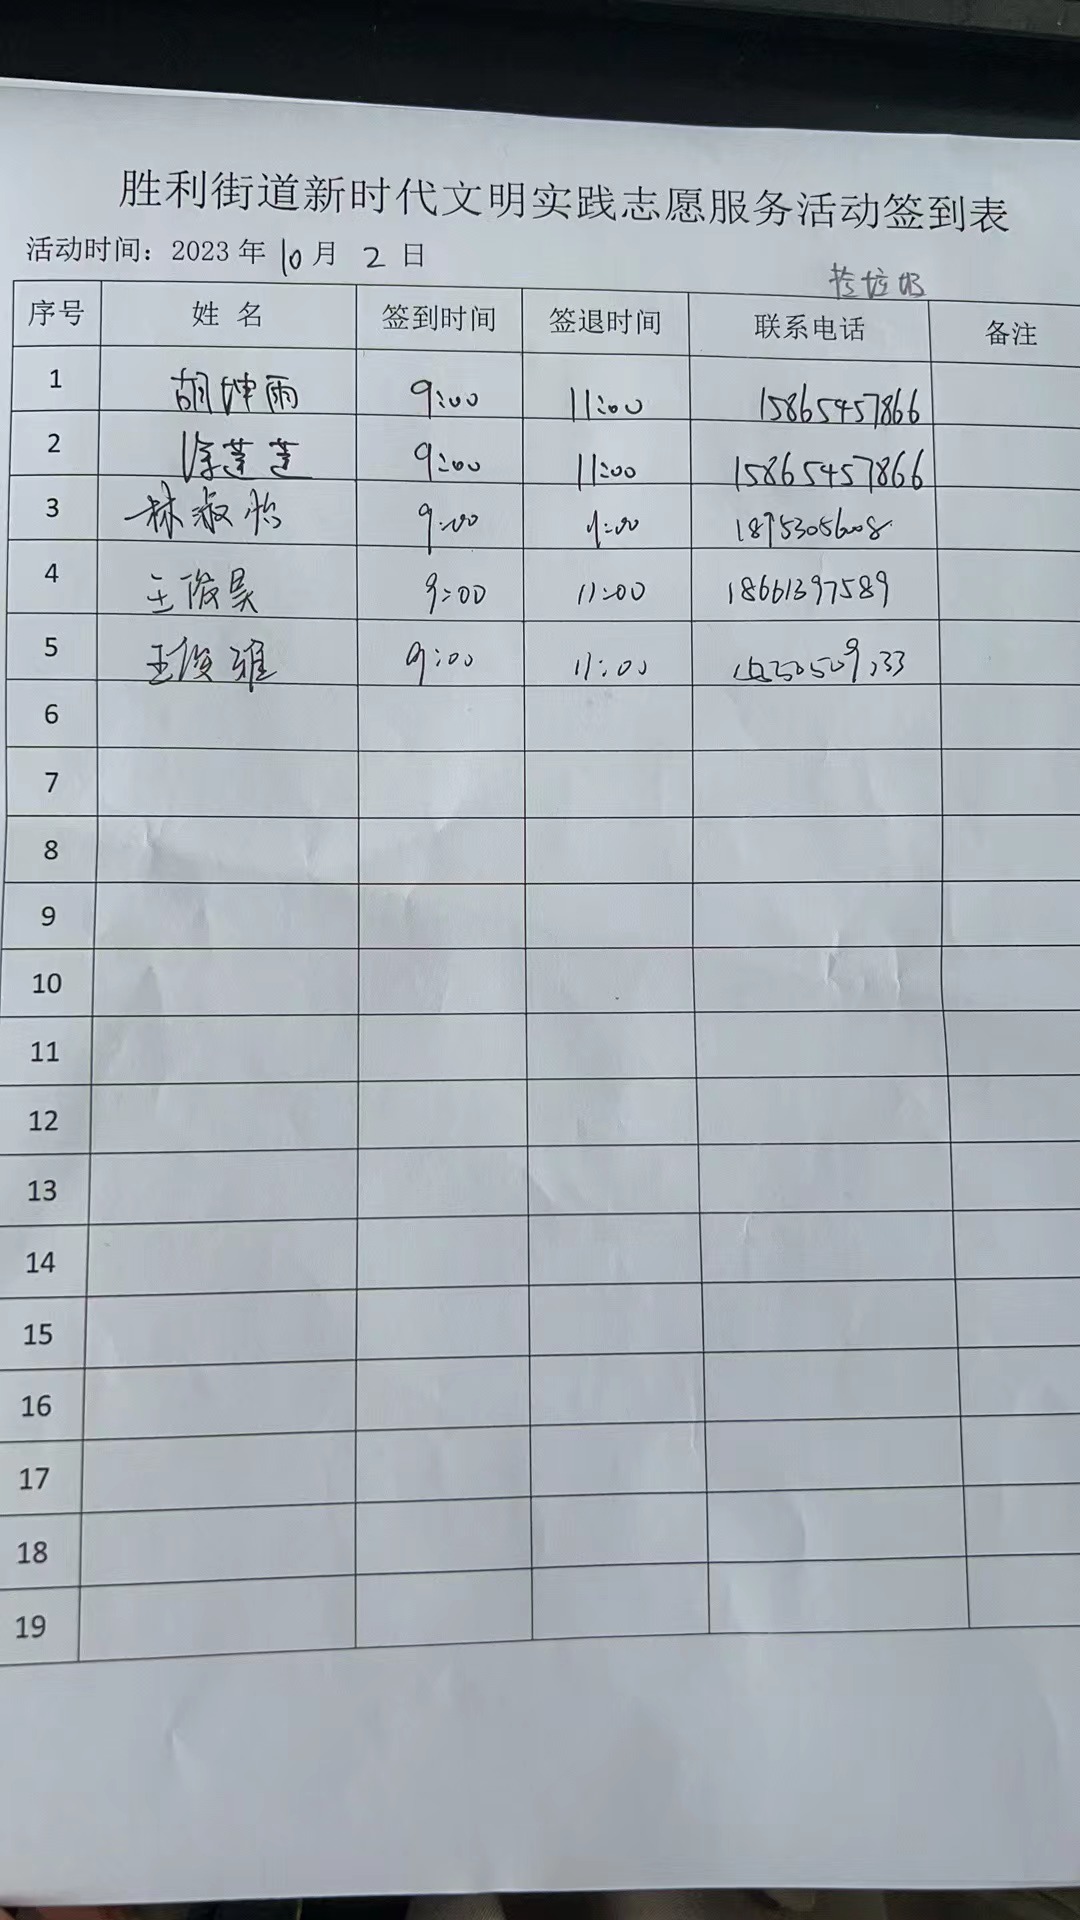 胜利街道新时代文明实践志愿服务活动签到表
活动时间：2023年 10月 2 日
捡垃圾
序号 姓 名 签到时间 签退时间 联系电话 备注
1 胡坤雨 9:00 11:00 15865457866
2 徐莲莲 9:00 11:00 15865457866
3 林淑怡 9:00 9:00 18953056008
4 王俊昊 9:00 11:00 18661397589
5 王俊雅 9:00 11:00
6
7
8
9
10
11
12
13
14
15
16
17
18
19